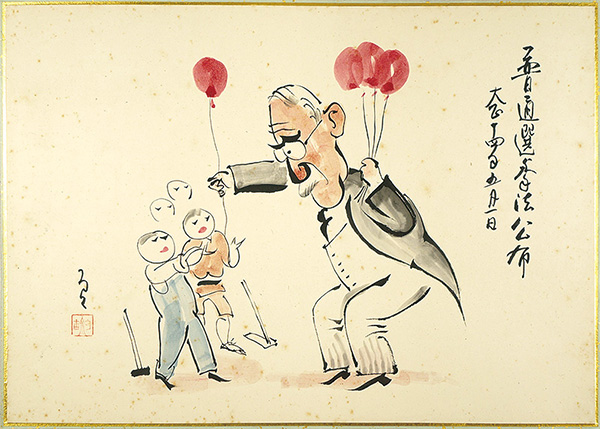 普通選挙法公布
大正十四年五月一日